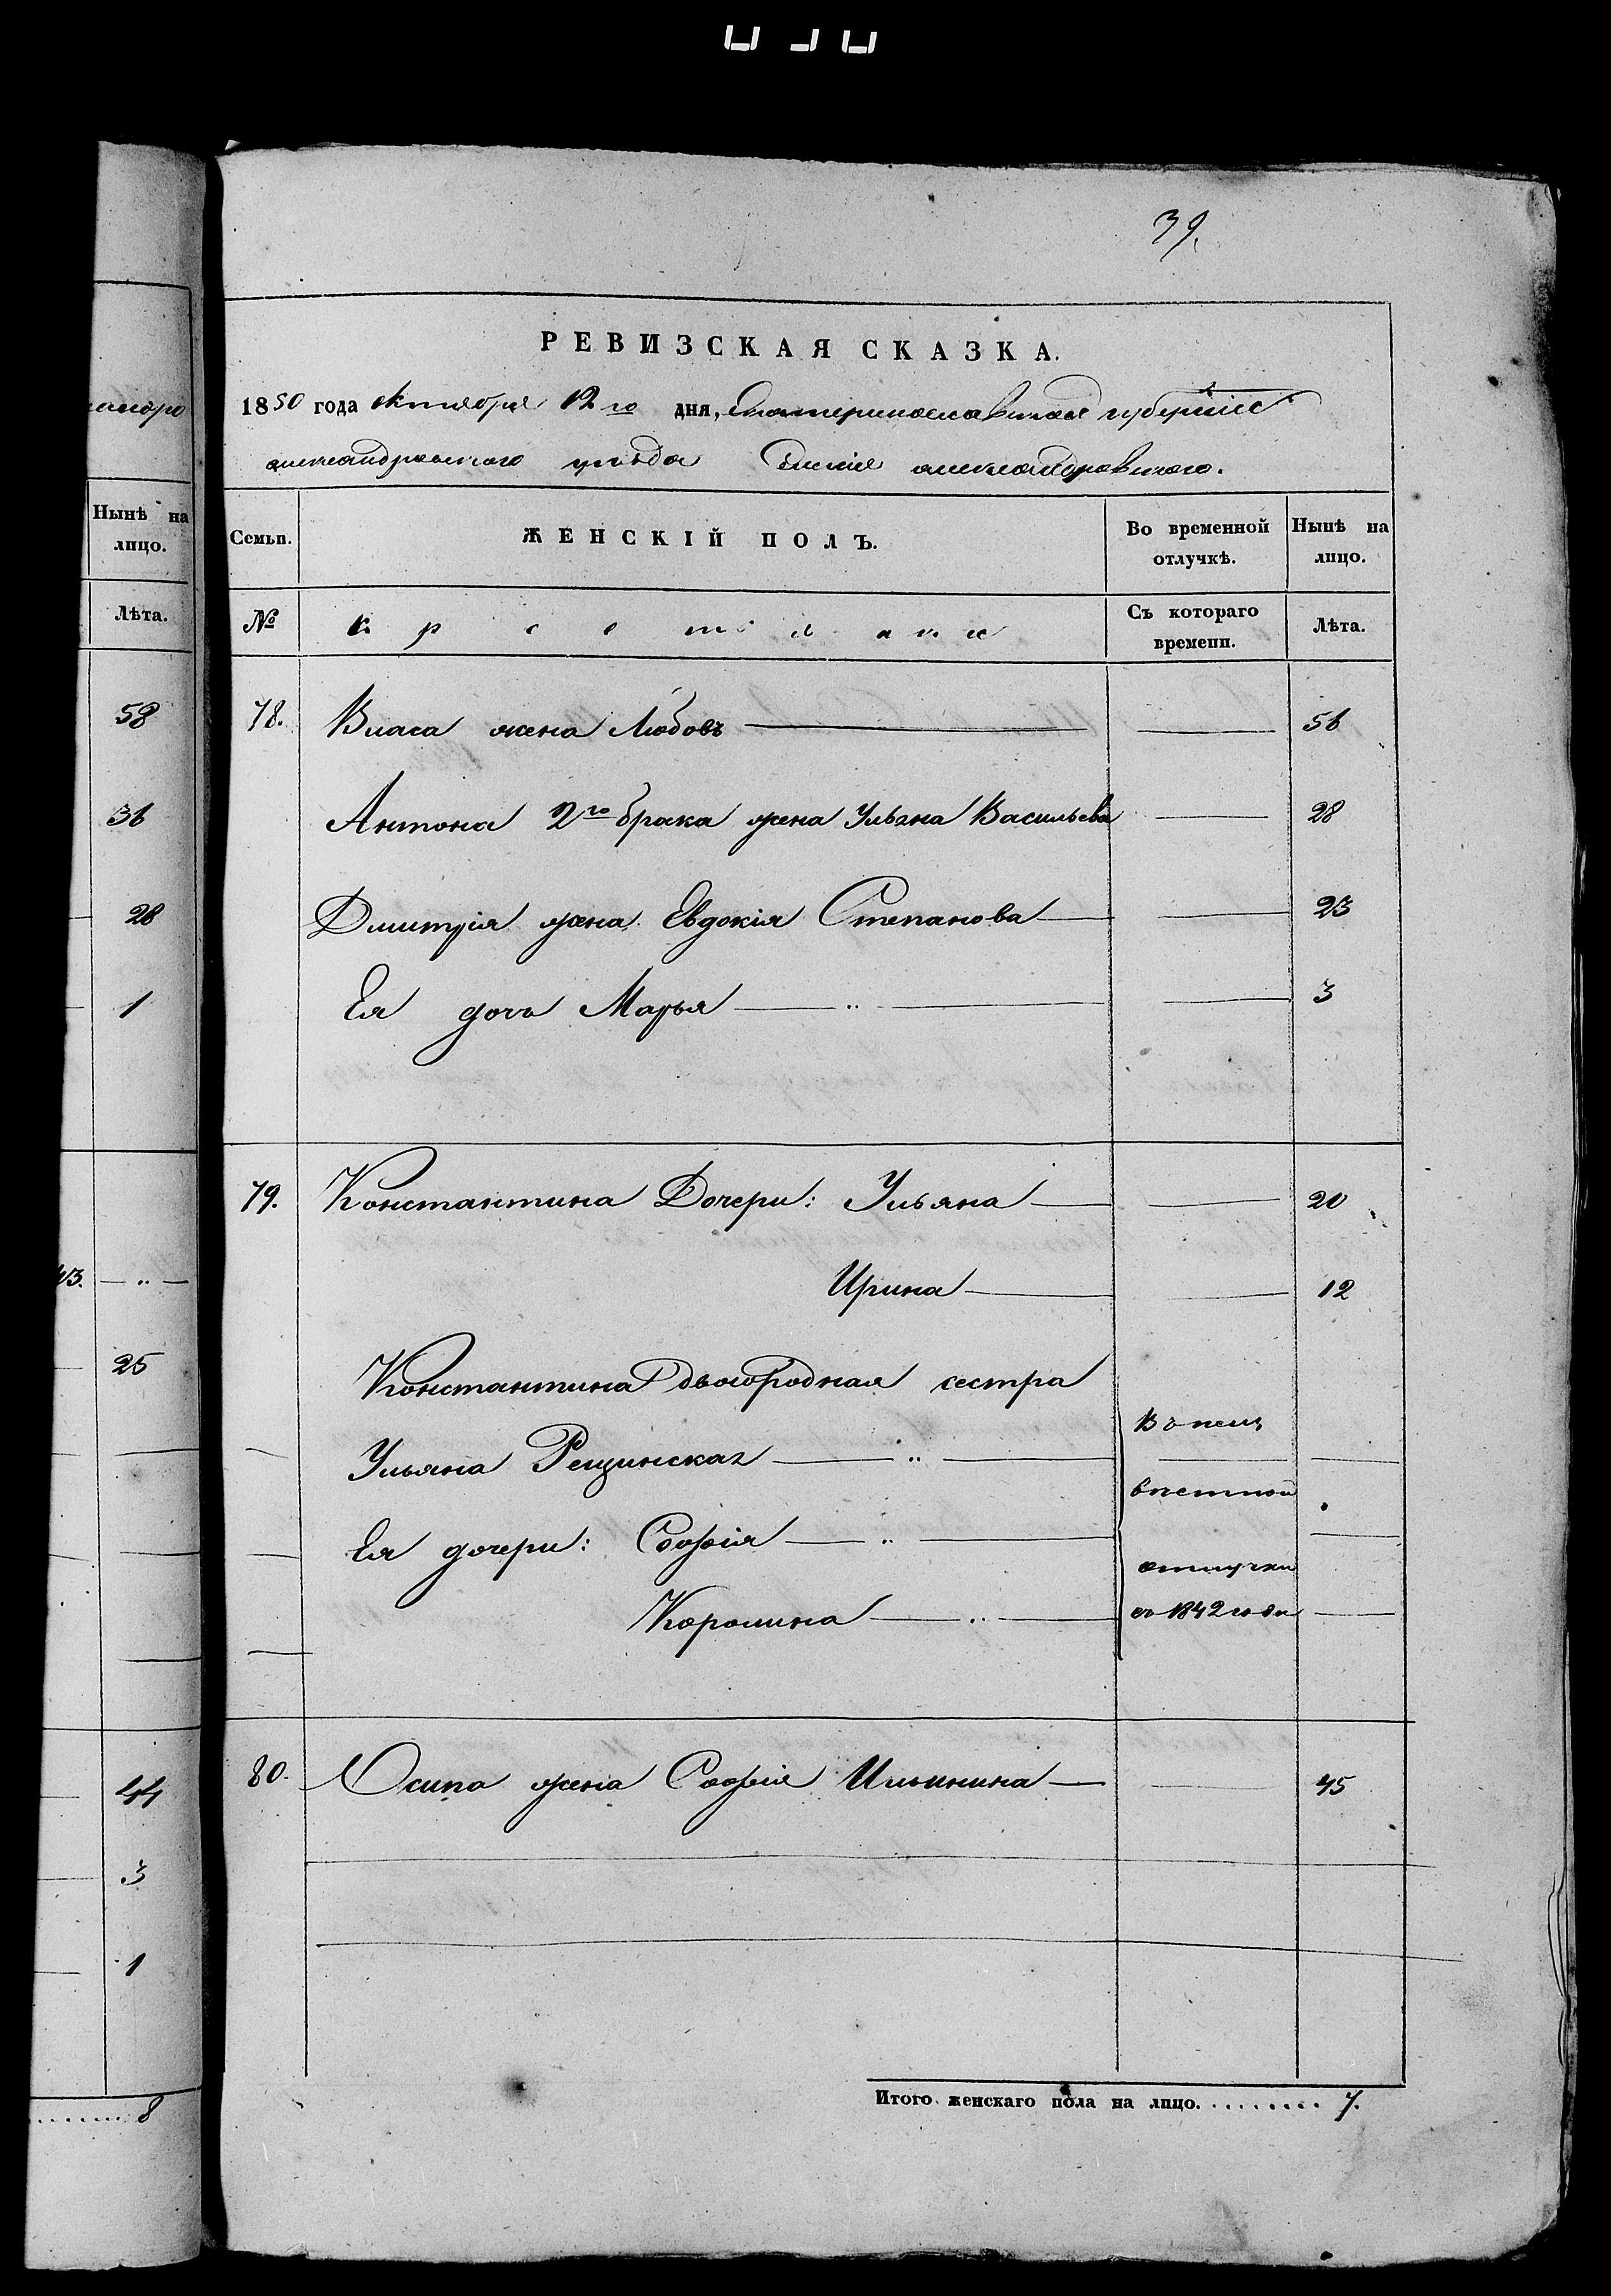 39.
РЕВИЗСКАЯ СКАЗКА.
1850 года октября 12го дня, Екатеринославской губернии
александровского уезда Селенія александровского.
Нынѣ на лицо.
Лѣта.
58
36
28
1
43. — „ —
25
44
3
1
8
Семьи. ЖЕНСКІЙ ПОЛЪ. Во временной отлучкѣ. Нынѣ на лицо.
№ крестьяне Съ котораго времени. Лѣта.
78. Власа жена Любовь — — 56
Антона 2го брака жена Ульяна Васильева — 28
Дмитрія жена Евдокія Степанова — — 23
Ея дочь Марья — „ — — 3
79. Константина Дочери: Ульяна — — 20
Ирина — — 12
Константина двоюродная сестра
Ульяна Рещинская — „ — —
Ея дочери: Софія — „ — —
Каролина — „ — —
отлучки
съ 1842 года
80. Осипа жена Софія Ильинина — — 45
Итого женскаго пола на лицо. . . . . . . . . 7.